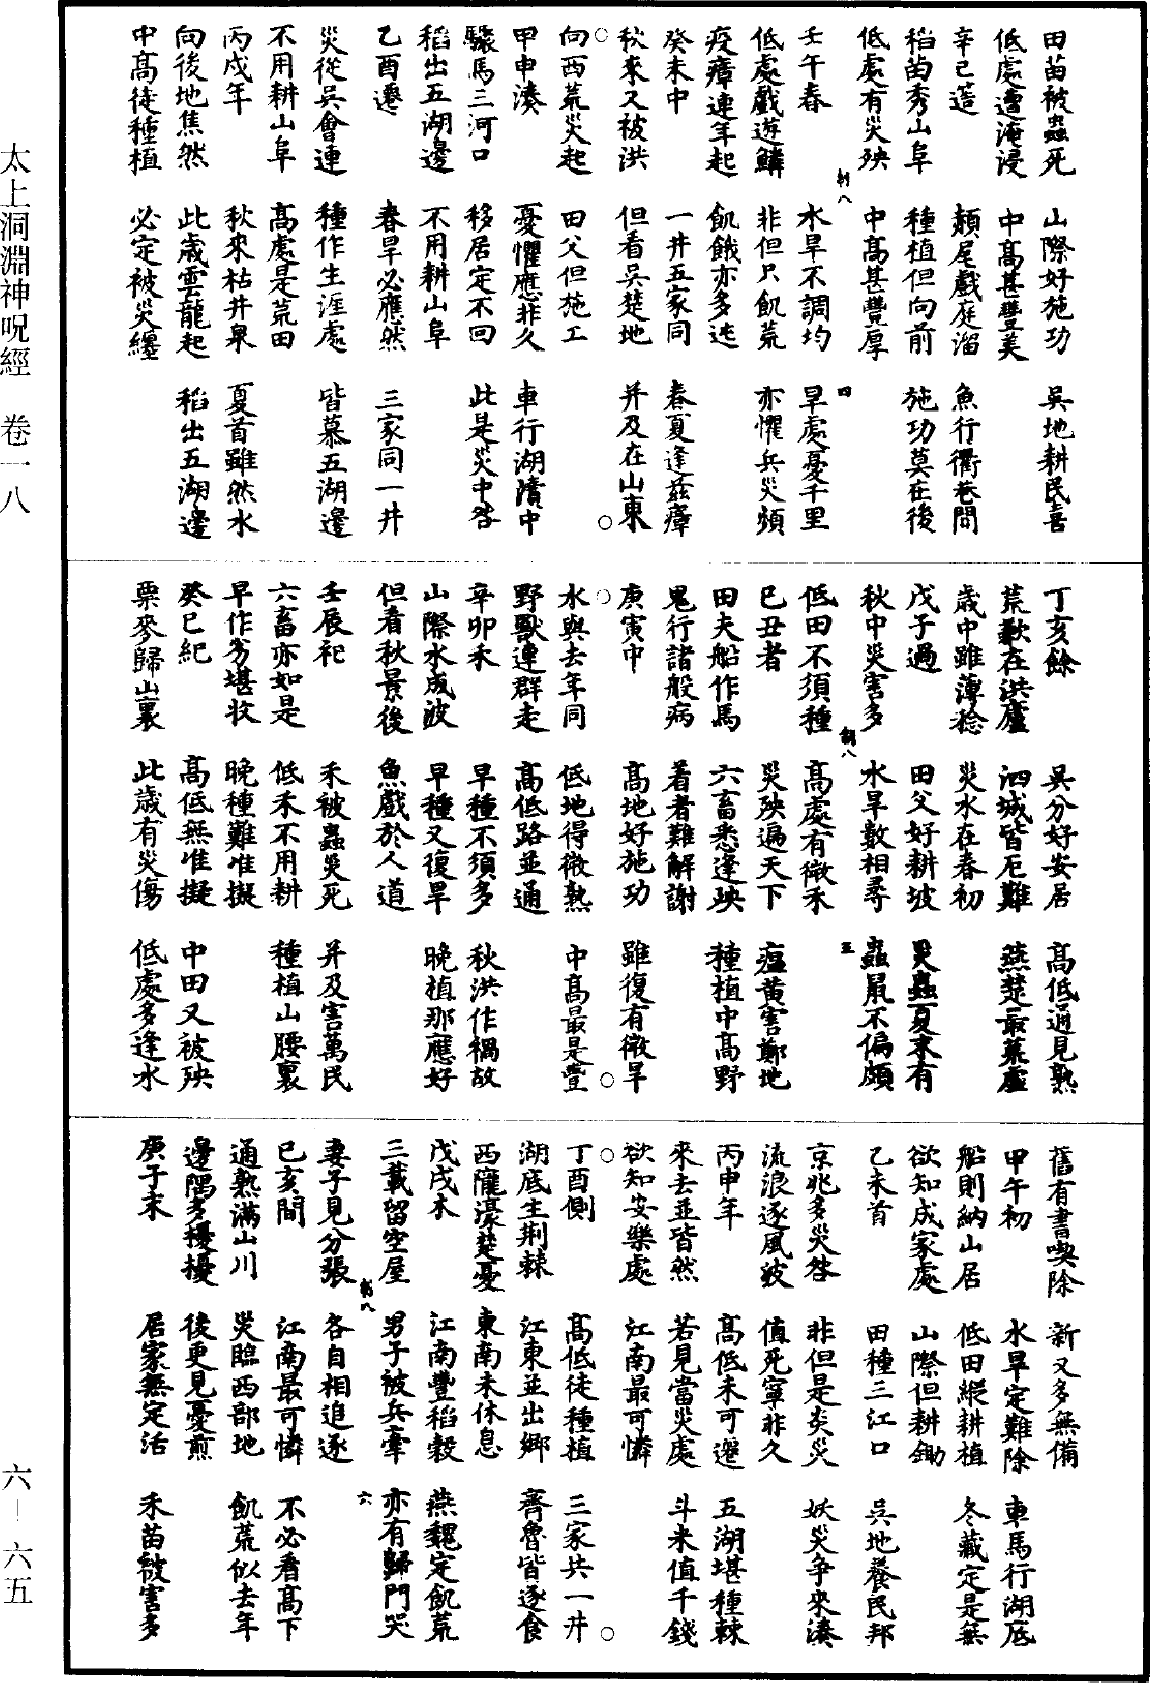 田苗被蟲死 山際好施功 吳地耕民喜
低處遭淹浸 中高甚豐美
辛巳莛 頳尾戲庭溜 魚行衢巷間
稻苗秀山阜 種植但向前 施功莫在後
低處有災殃 中高甚豐厚
制八 四
壬午春 水旱不調均 旱處憂千里
低處戲遊鱗 非但只飢荒 亦懼兵災頻
疫瘴連年起 飢餓亦多迍
癸未中 一井五家同 春夏逢茲瘴
秋來又被洪 但看吳楚地 并及在山東
○ ○
向西荒災起 田父但施工
甲申湊 憂懼應非久 車行湖濆中
驟馬三河口 移居定不回 此是災中咎
稻出五湖邊 不用耕山阜
乙酉遷 春旱必應然 三家同一井
災從吳會連 種作生涯處 皆慕五湖邊
不用耕山阜 高處是荒田
丙戌年 秋來枯井泉 夏首雖然水
向後地焦然 此歲雲龍起 稻出五湖邊
中高徒種植 必定被災纏
丁亥餘 吳分好安居 高低通見熟
荒歉在洪廬 泗城皆厄難 燕楚最荒虛
歲中雖薄稔 災水在春初
戊子過 田父好耕坡 災蟲夏末有
秋中災害多 水旱數相尋 蟲鼠不偏頗
制八 五
低田不須種 高處有微禾
巳丑者 災殃遍天下 瘟黃害鄭地
田夫船作馬 六畜悉逢殃 種植中高野
鬼行諸般病 著者難解謝
庚寅中 高地好施功 雖復有微旱
○ ○
水與去年同 低地得微熟 中高最是豐
野獸連群走 高低路並通
辛卯禾 早種不須多 秋洪作禍故
山際水成波 早種又復旱 晚植那應好
但看秋景後 魚戲於人道
壬辰祀 禾被蟲災死 并及害萬民
六畜亦如是 低禾不用耕 種植山腰裏
早作方堪收 晚種難准擬
癸巳紀 高低無准擬 中田又被殃
栗麥歸山裏 此歲有災傷 低處多逢水
舊有書喫除 新又多無備
甲午初 水旱定難除 車馬行湖底
船則納山居 低田縱耕植 冬藏定是無
欲知成家處 山際但耕鋤
乙未首 田種三江口 吳地養民邦
京兆多災咎 非但是炎災 妖災爭來湊
流浪逐風波 值死寧非久
丙申年 高低未可遷 五湖堪種棘
來去並皆然 若見當災處 斗米值千錢
欲知安樂處 江南最可憐
○ ○
丁酉側 高低徒種植 三家共一井
湖底生荆棘 江東並出鄉 齊魯皆逐食
西隴濠楚憂 東南未休息
戊戌本 江南豐稻穀 燕魏定飢荒
三載留空屋 男子被兵牽 亦有歸門哭
制八 六
妻子見分張 各自相追逐
巳亥間 江南最可憐 不必看高下
通熟滿山川 災臨西部地 飢荒似去年
邊隅多擾擾 後更見憂煎
庚子末 居家無定活 禾苗被害多
太上洞淵神呪經 卷一八
六—六五